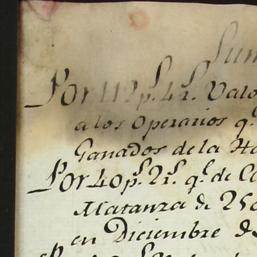 Sum
Por 112 p.s 4 r.s Valo
a los Operarios q.e
Ganados de la Ha
Por 40 p.s 2 r.s q.e de Ca
Matanza de 250
en Diciembre de